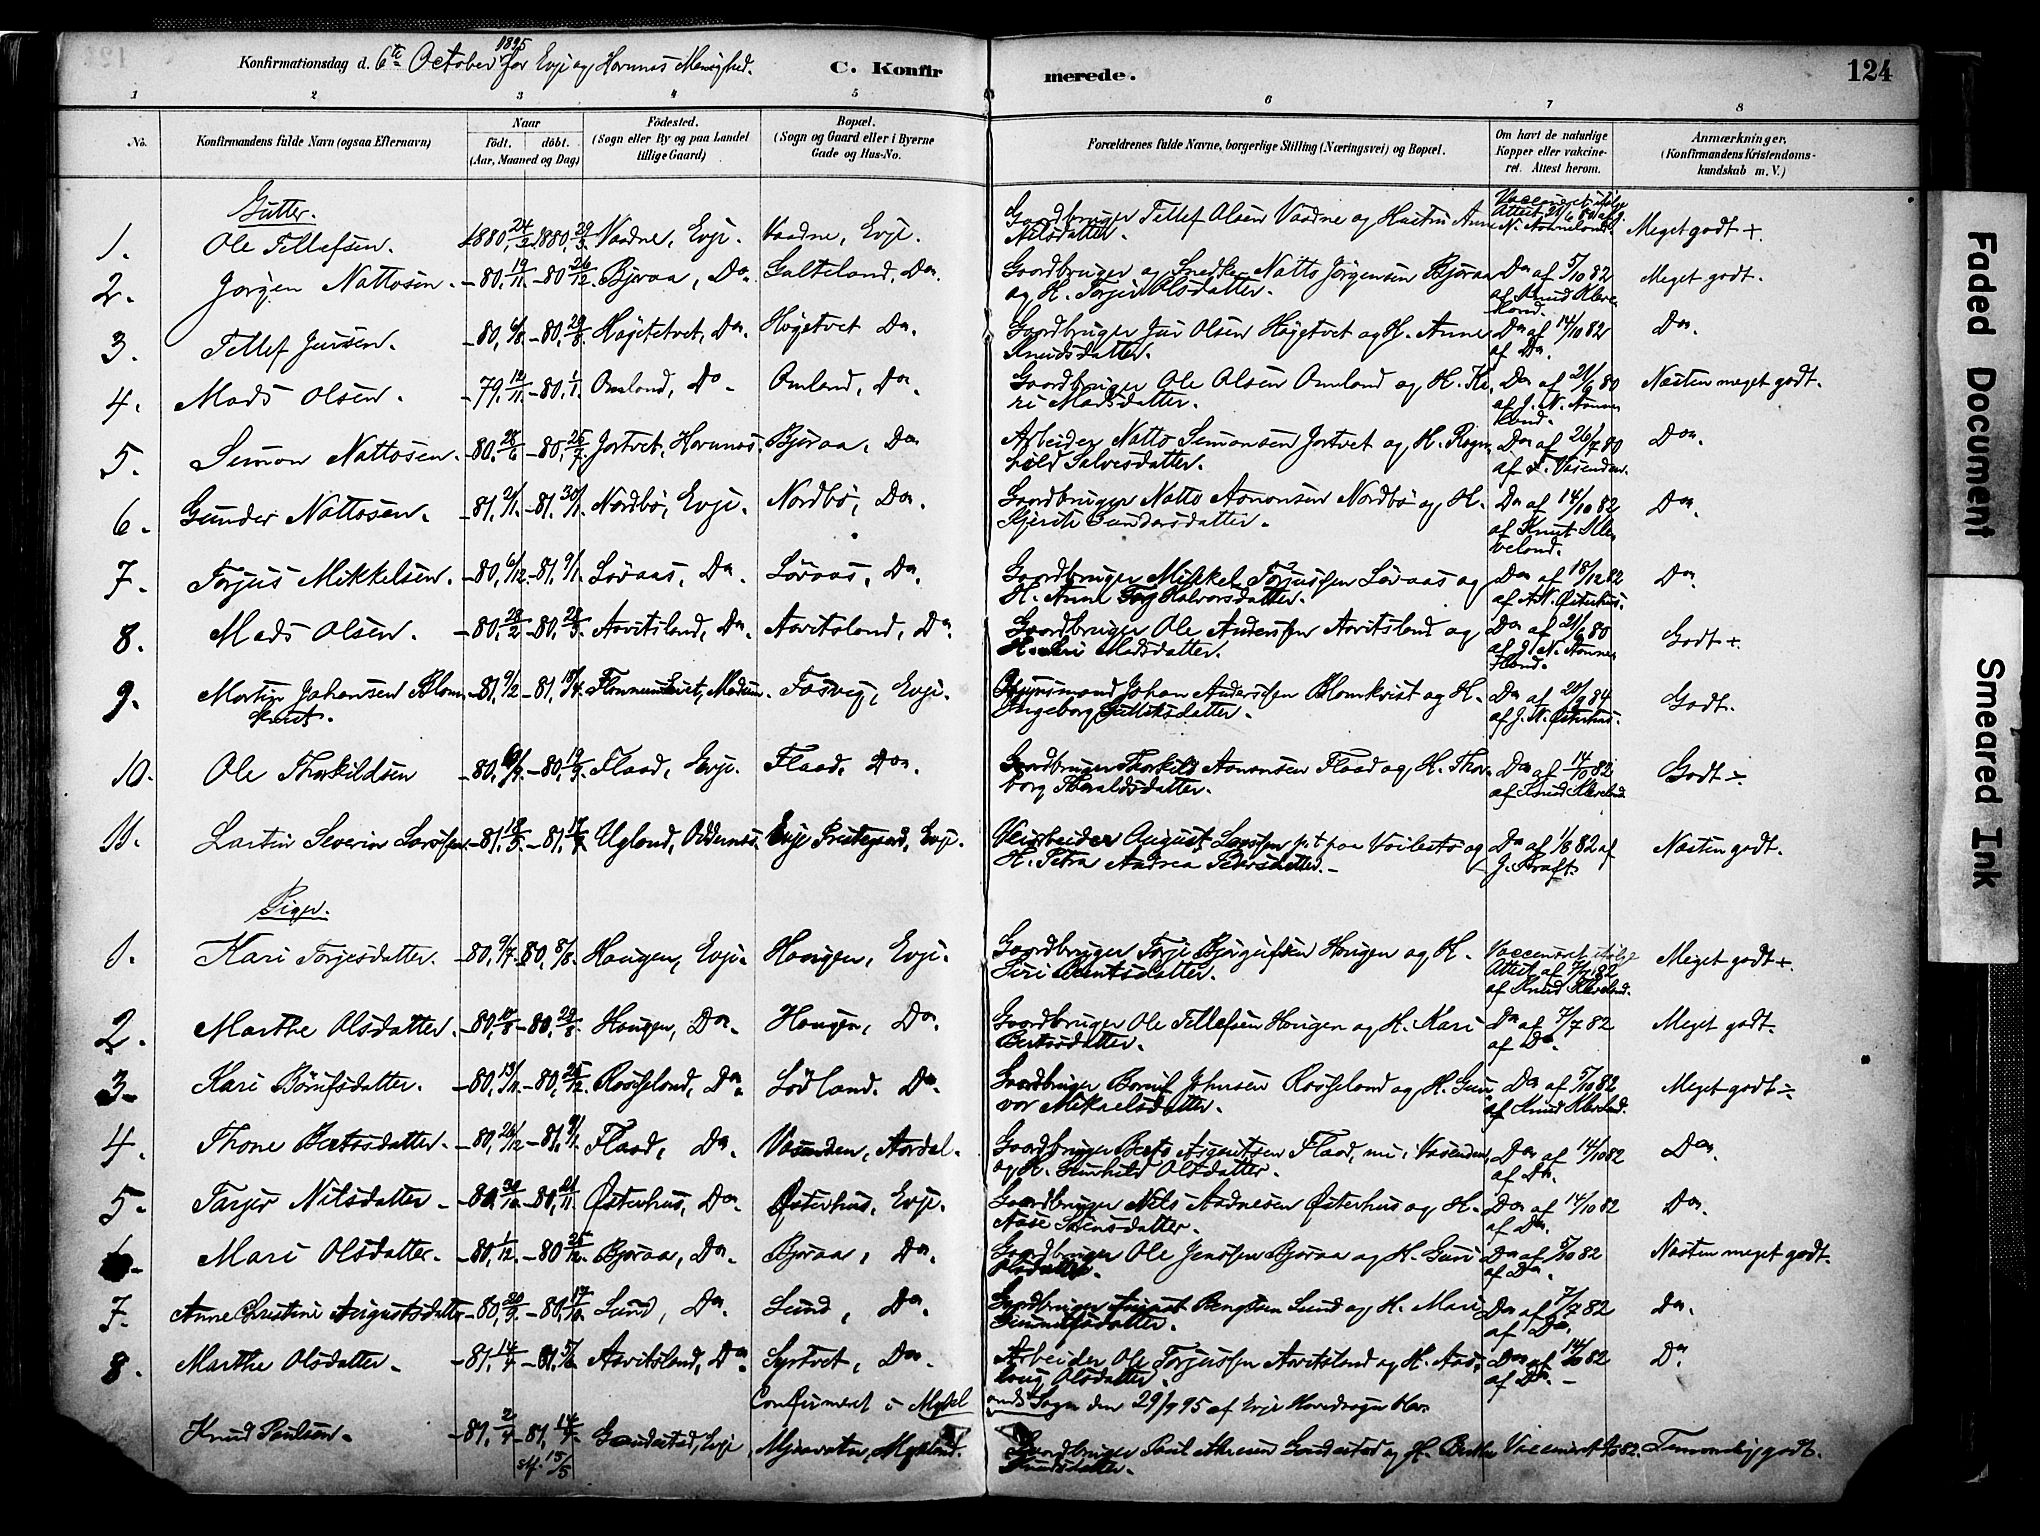 Konfirmationsdag d. 6te October 1895 for Evje og Hornnes Menighed. C. Konfirmerede. 124
1 2 3 4 5 6 7 8
No. Konfirmandens fulde Navn (ogsaa Efternavn) Naar födt. döbt. (Aar, Maaned og Dag) Födested. (Sogn eller By og paa Landet tillige Gaard) Bopæl. (Sogn og Gaard eller i Byerne Gade og Hus-No.) Forældrenes fulde Navne, borgerlige Stilling (Næringsvei) og Bopæl. Om havt de naturlige Kopper eller vakcineret. Attest herom. Anmærkninger, (Konfirmandens Kristendomskundskab m. V.)
Gutter.
1. Ole Tellefsen. 1880 24/2 1880 29/3 Vaadne, Evje. Vaadne, Evje. Gaardbruger Tellef Olsen Vaadne og Hustru Anne Nilsdatter. Meget godt +.
2. Jörgen Nattosen. -80, 19/11 -80 26/12 Bjøraa, Do. Galteland, Do. Gaardbruger og Snedker Natto Jörgensen Bjøraa og H. Torjer Olsdatter. Do af 5/10 82 af Knud Kleveland. Meget godt.
3. Tellef Jensen. -80, 6/8 -80, 29/8 Høgetvet, Do. Høgetvet Do. Gaardbruger Jens Olsen Høgetvet og H. Anne Knudsdatter. Do af 14/10 82 af Do. Do.
4. Mads Olsen. -79, 12/11 -80, 1/1 Omland, Do. Omland, Do. Gaardbruger Ole Olsen Omland og H. Kari Madsdatter. Do af 21/6 80 af J. N. Aaneland. Næsten meget godt.
5. Simon Nattosen. -80, 28/6 -80, 25/7 Jortvet, Hornnes. Bjøraa, Do. Arbeider Natto Simonsen Jortvet og H. Ragnhild Salvesdatter. Do af 26/7 80 af F. Vasenden. Do.
6. Gunder Nattosen. -81, 2/1 -81, 30/1 Nordbö, Evje. Nordbö, Do. Gaardbruger Natto Aanonsen Nordbö og H. Kjersti Gundersdatter. Do af 14/10 82 af Knut Kleveland. Do.
7. Torjus Mikkelsen. -80, 6/12 -81, 9/1 Løvaas, Do. Løvaas, Do. Gaardbruger Mikkel Torjussen Løvaas og H. Anne Halvorsdatter. Do af 18/12 82 af A. N. Østerhus. Do.
8. Mads Olsen. -80, 28/2 -80, 28/3 Aavitsland, Do. Aavitsland, Do. Gaardbruger Ole Anderssen Aavitsland og H. Madsdatter. Do af 21/6 80 af J. N. Aaneland. Godt +.
9. Martin Johansen Blomkvist. -81, 9/2 -81, 18/4 Modum. Fosvig, Evje. Johan Anderssen Blomkvist og H. Ingeborg Gulliksdatter. Do af 20/9 84 af J. N. Østerhus. Godt.
10. Ole Thorkildsen -80, -80, 19/9 Flaad, Evje. Flaad, Do. Gaardbruger Thorkild Aanonsen Flaad og H. Thorborg Tharaldsdatter. Do af 14/10 82 af Knud Kleveland. Godt ÷.
11. Lartin Severin Larssen. -81, -81, Ugland, Oddernes. Evje Præstegaard, Evje. Veiarbeider August Larssen p.t. paa og H. Petra Andrea Pedersdatter. Do af 1/6 82 af J. Kraft. Næsten godt.
Piger.
1. Kari Torjesdatter. -80, 9/7 -80, 8/8 Haugen, Evje. Haugen, Evje. Gaardbruger Torje Bjørgulfsen Haugen og H. Siri Berntsdatter. Vaccineret ifølge Attest af 7/7 82 af Knud Kleveland. Meget godt +.
2. Marthe Olsdatter. -80, 17/8 -80, 29/8 Haugen, Do. Haugen, Do. Gaardbruger Ole Tellefsen Haugen og H. Kari Bertosdatter. Do af 7/7 82 af Do. Meget godt.
3. Kari Börufsdatter. -80, 13/11 -80, 26/12 Rosseland, Do. Lødland. Do. Gaardbruger Børuf Johnsen Rosseland og H. Gunvor Mikaelsdatter. Do af 5/10 82 af Knud Kleveland. Meget godt ÷.
4. Thone Bertosdatter. -80, 26/12 -81, Flaad, Do. Vasenden, Aardal. Gaardbruger Berto Flaad, nu i Vasenden, og H. Gunhild Olsdatter. Do af 14/10 82 af Do. Do.
5. Torjer Nilsdatter. -80, 30/10 -80, 21/11 Østerhus, Do. Østerhus, Evje. Gaardbruger Nils Aadnesen Østerhus og H. Aase Stensdatter. Do af 14/10 82 af Do. Do.
6. Mari Olsdatter. -80, 1/12 -80 26/12 Bjøraa, Do. Bjøraa, Do. Gaardbruger Ole Jenssen Bjøraa og H. Guri Olsdatter. Do af 5/10 82 af Do. Næsten meget godt.
7. Anne Christine Augustsdatter -80, 20/9 -80, 17/10 Lund, Do. Lund, Do. Gaardbruger August Bengtsen Lund og H. Mari Gunnulfsdatter. Do af 7/7 82 af Do. Do.
8. Marthe Olsdatter. -81, 14/4 -81, 5/6 Aavitsland, Do. Syrtvet, Do. Arbeider Ole Torjussen Aavitsland og H. Aasborg Olsdatter. Do af 14/10 82 af Do. Do.
Confirmeret i Myklands Sogn den 29/9 95 af Evje Hovedsogn
Knud Paulsen. -81, 2/4 -81, 14/4 st. 15/5 Gaudestad, Evje Mjaavatn, Mykland. Gaardbruger Paul Gaudestad og H. Berthe Knudsdatter. Vaccineret 82. Temmelig godt.
Faded Document
Smeared Ink